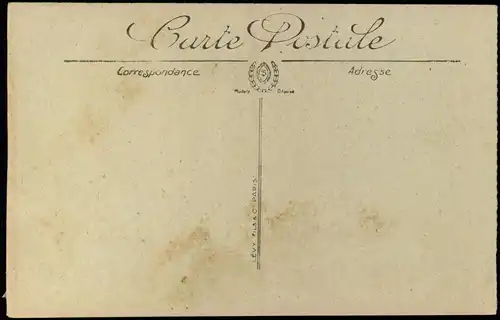 Carte Postale
Correspondance
Adresse
Modèle Déposé
LÉVY FILS & C° PARIS